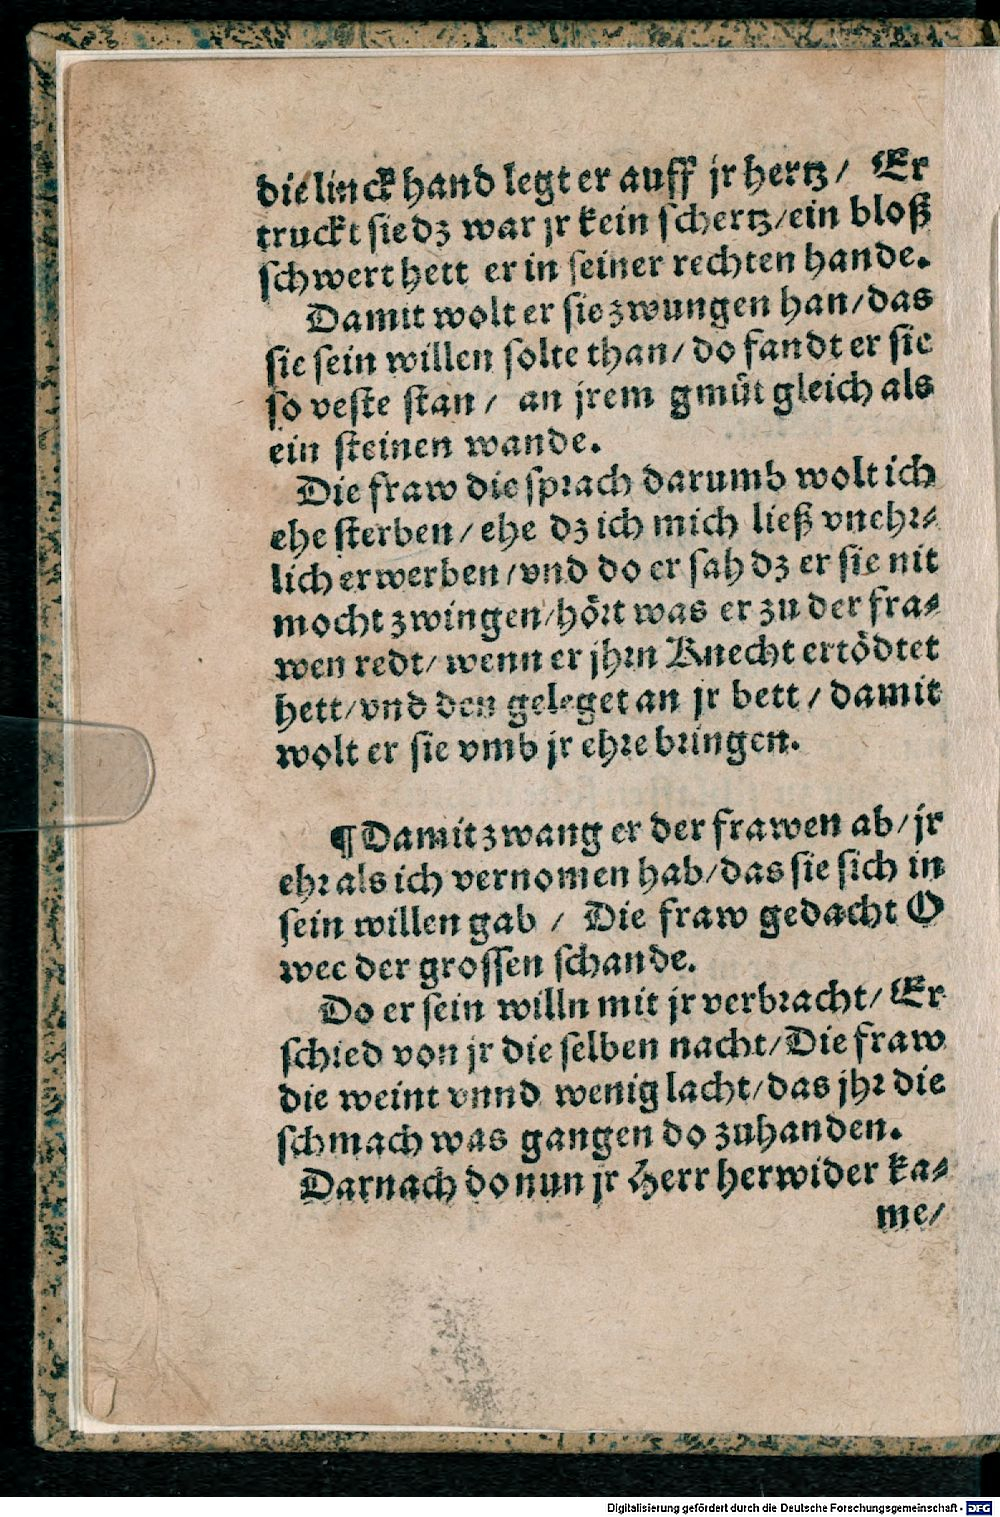 die linck hand legt er auff jr hertz / Er
truckt sie dz war jr kein schertz / ein bloß
schwert hett er in seiner rechten hande.
Damit wolt er sie zwungen han / das
sie sein willen solte than / do fandt er sie
so veste stan / an jrem gmüt gleich als
ein steinen wande.
Die fraw die sprach darumb wolt ich
ehe sterben / ehe dz ich mich ließ vnehr⸗
lich erwerben / vnd do er sah dz er sie nit
mocht zwingen / hört was er zu der fra⸗
wen redt / wenn er jhrn Knecht ertödtet
hett / vnd den geleget an jr bett / damit
wolt er sie vmb jr ehre bringen.
¶ Damit zwang er der frawen ab / jr
ehr als ich vernomen hab / das sie sich in
sein willen gab / Die fraw gedacht O
wee der grossen schande.
Do er sein willn mit jr verbracht / Er
schied von jr die selben nacht / Die fraw
die weint vnnd wenig lacht / das jhr die
schmach was gangen do zuhanden.
Darnach do nun jr Herr herwider ka⸗
me /
Digitalisierung gefördert durch die Deutsche Forschungsgemeinschaft - DFG